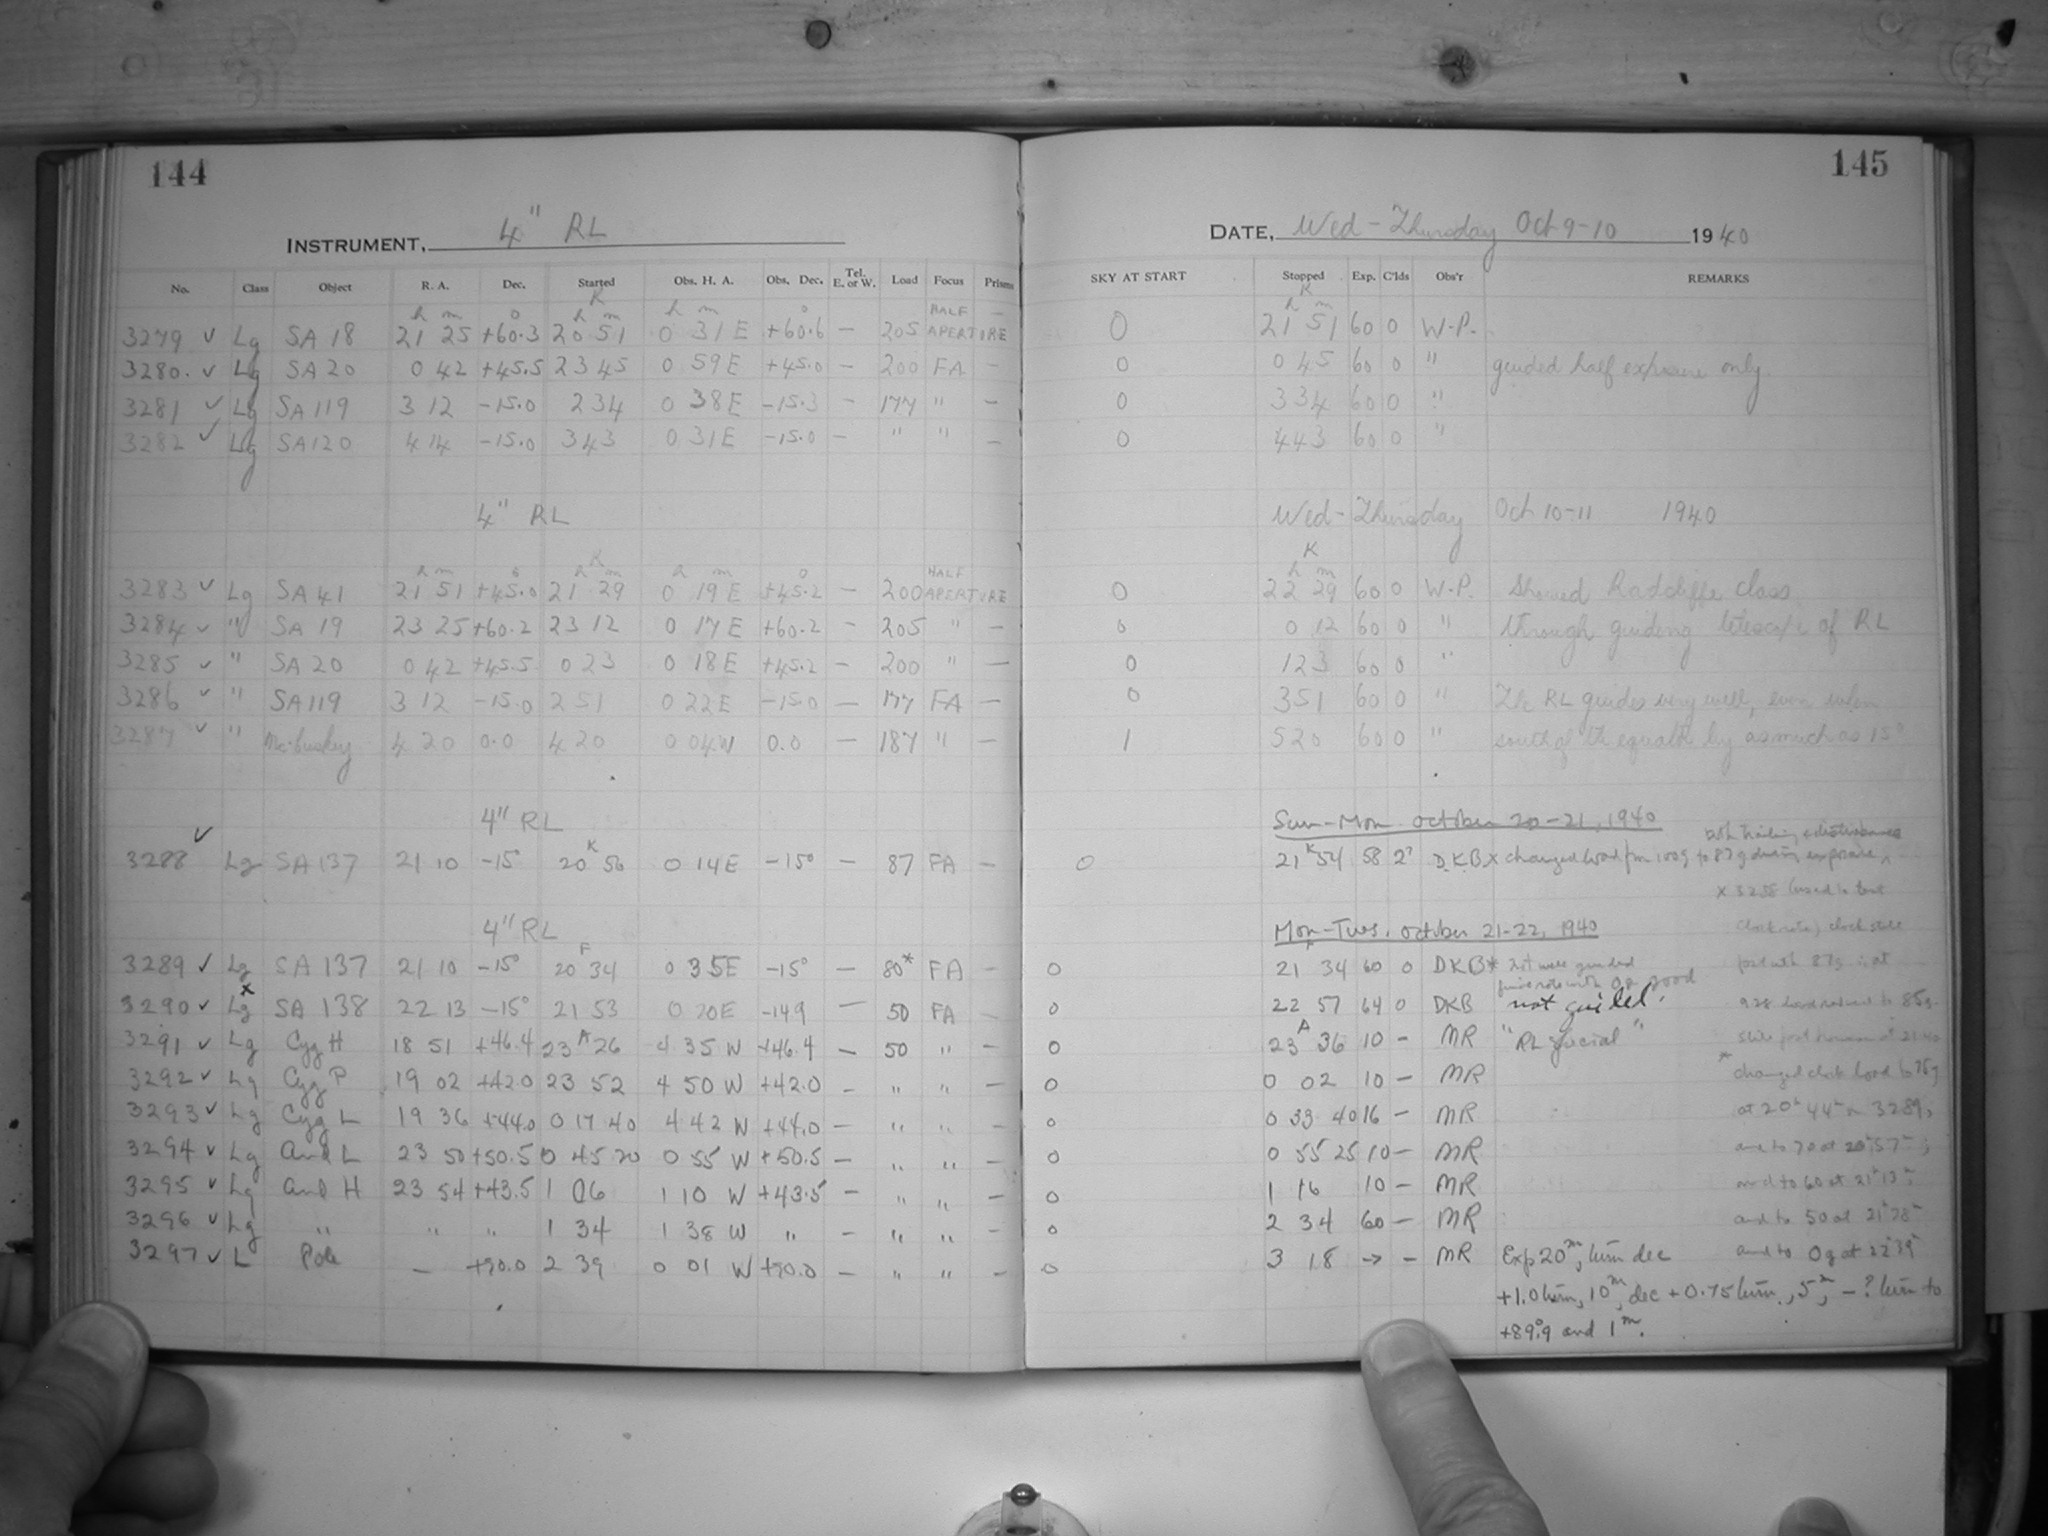 144
145
INSTRUMENT, 4" RL
DATE, Wed-Thursday Oct 9-10 1940
No. Class Object R. A. Dec. Started Obs. H. A. Obs. Dec. Tel. E. or W. Load Focus Prisms SKY AT START Stopped Exp. C'lds Obs'r REMARKS
h m ° K h m h m ° HALF — K h m
3279 ✓ Lg SA 18 21 25 +60.3 20 51 0 31 E +60.6 — 205 APERTURE 0 21 51 60 0 W.P.
3280. ✓ Lg SA 20 0 42 +45.5 23 45 0 59 E +45.0 — 200 FA — 0 0 45 60 0 " guided half exposure only.
3281 ✓ Lg SA 119 3 12 -15.0 2 34 0 38 E -15.3 — 177 " — 0 3 34 60 0 "
3282 ✓ Lg SA 120 4 14 -15.0 3 43 0 31 E -15.0 — " " — 0 4 43 60 0 "
4" RL Wed-Thursday Oct 10-11 1940
h m ° K h m h m ° HALF K h m
3283 ✓ Lg SA 41 21 51 +45.0 21 29 0 19 E +45.2 — 200 APERTURE 0 22 29 60 0 W.P. Showed Radcliffe class
3284 ✓ " SA 19 23 25 +60.2 23 12 0 17 E +60.2 — 205 " — 0 0 12 60 0 " through guiding telescope of RL
3285 ✓ " SA 20 0 42 +45.5 0 23 0 18 E +45.2 — 200 " — 0 1 23 60 0 "
3286 ✓ " SA 119 3 12 -15.0 2 51 0 22 E -15.0 — 177 FA — 0 3 51 60 0 " The RL guides very well, even when
3287 ✓ " McCuskey 4 20 0.0 4 20 0 04 W 0.0 — 187 " — 1 5 20 60 0 " south of the equator by as much as 15°
4" RL Sun-Mon October 20-21, 1940
3288 ✓ Lg SA 137 21 10 -15° 20 K 56 0 14 E -15° — 87 FA — 0 21 K 54 58 2? DKB x changed load from 100g to 87g during exposure
x 3288 (used to test
4" RL Mon-Tues. October 21-22, 1940 clock rate)
3289 ✓ Lg SA 137 21 10 -15° 20 F 34 0 35 E -15° — 80* FA — 0 21 F 34 60 0 DKB * not well guided
fast with 87g
3290 ✓ Lg x SA 138 22 13 -15° 21 53 0 20 E -14.9 — 50 FA — 0 22 57 64 0 DKB not guided.
3291 ✓ Lg Cyg H 18 51 +46.4 23 A 26 4 35 W +46.4 — 50 " — 0 23 A 36 10 — MR "RL special"
3292 ✓ Lg Cyg P 19 02 +42.0 23 52 4 50 W +42.0 — " " — 0 0 02 10 — MR * changed clock load to 75g
3293 ✓ Lg Cyg L 19 36 +44.0 0 17 40 4 42 W +44.0 — " " — 0 0 33 40 16 — MR at 20h 44m on 3289;
3294 ✓ Lg And L 23 50 +50.5 0 45 20 0 55 W +50.5 — " " — 0 0 55 25 10 — MR and to 70 at 20h 57m;
3295 ✓ Lg And H 23 54 +43.5 1 06 1 10 W +43.5 — " " — 0 1 16 10 — MR and to 60 at 21h 13m;
3296 ✓ Lg " " " 1 34 1 38 W " — " " — 0 2 34 60 — MR and to 50 at 21h 28m
3297 ✓ L Pole — +90.0 2 39 0 01 W +90.0 — " " — 0 3 18 → — MR Exp 20m, turn dec and to 0g at 22h 39m
+1.0 turn, 10m, dec + 0.75 turn, 5m, — ? turn to
+89°.9 and 1m.